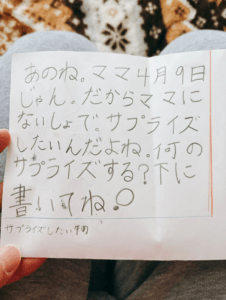 あのね。ママ4月9日
じゃん。だからママに
ないしょで。サプライズ
したいんだよね。何の
サプライズする?下に
書いてね。
サプライズしたい